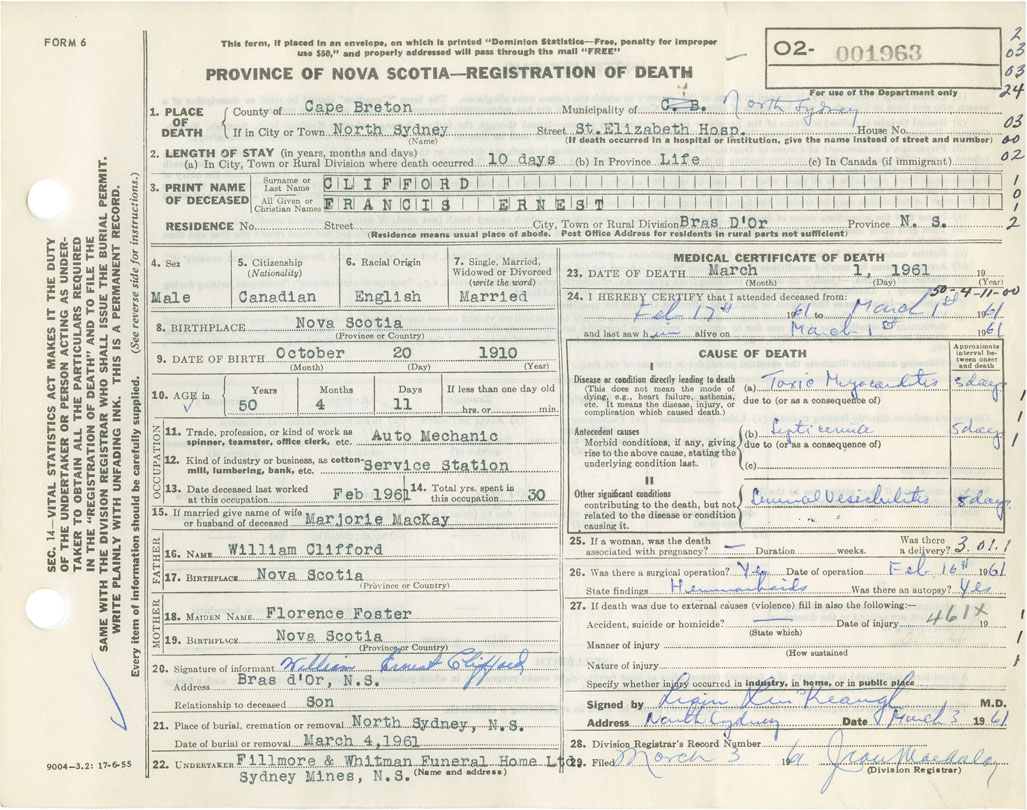 FORM 6
This form, if placed in an envelope, on which is printed "Dominion Statistics—Free, penalty for improper
use $50," and properly addressed will pass through the mail "FREE"
O2- 001963
For use of the Department only
2
03
03
24
03
00
02
1
0
1
2
PROVINCE OF NOVA SCOTIA—REGISTRATION OF DEATH
1. PLACE OF DEATH
County of Cape Breton Municipality of C.B. North Sydney
If in City or Town North Sydney Street St.Elizabeth Hosp. House No.
(Name) (If death occurred in a hospital or institution, give the name instead of street and number)
2. LENGTH OF STAY (in years, months and days)
(a) In City, Town or Rural Division where death occurred 10 days (b) In Province Life (c) In Canada (if immigrant)
3. PRINT NAME OF DECEASED
Surname or Last Name CLIFFORD
All Given or Christian Names FRANCIS ERNEST
RESIDENCE No. Street City, Town or Rural Division Bras D'Or Province N. S.
(Residence means usual place of abode. Post Office Address for residents in rural parts not sufficient)
4. Sex
Male
5. Citizenship
(Nationality)
Canadian
6. Racial Origin
English
7. Single, Married,
Widowed or Divorced
(write the word)
Married
8. BIRTHPLACE Nova Scotia
(Province or Country)
9. DATE OF BIRTH October 20 1910
(Month) (Day) (Year)
10. AGE in Years Months Days If less than one day old
50 4 11 hrs. or min.
OCCUPATION
11. Trade, profession, or kind of work as
spinner, teamster, office clerk, etc. Auto Mechanic
12. Kind of industry or business, as cotton-
mill, lumbering, bank, etc. Service Station
13. Date deceased last worked
at this occupation Feb 1961
14. Total yrs. spent in
this occupation 30
15. If married give name of wife
or husband of deceased Marjorie MacKay
FATHER
16. NAME William Clifford
17. BIRTHPLACE Nova Scotia
(Province or Country)
MOTHER
18. MAIDEN NAME Florence Foster
19. BIRTHPLACE Nova Scotia
(Province or Country)
20. Signature of informant William Ernest Clifford
Address Bras d'Or, N.S.
Relationship to deceased Son
21. Place of burial, cremation or removal North Sydney, N.S.
Date of burial or removal March 4,1961
22. UNDERTAKER Fillmore & Whitman Funeral Home Ltd.
Sydney Mines, N.S. (Name and address)
MEDICAL CERTIFICATE OF DEATH
23. DATE OF DEATH March 1, 1961 19
(Month) (Day) (Year)
50-4-11-00
24. I HEREBY CERTIFY that I attended deceased from:
Feb 17th 1961 to March 1st 1961
and last saw him alive on March 1st 1961
CAUSE OF DEATH
Approximate interval between onset and death
I
Disease or condition directly leading to death
(This does not mean the mode of
dying, e.g., heart failure, asthenia,
etc. It means the disease, injury, or
complication which caused death.)
(a) Toxic Myocarditis 3 days
due to (or as a consequence of)
Antecedent causes
Morbid conditions, if any, giving
rise to the above cause, stating the
underlying condition last.
(b) Septicemia 5 days
due to (or as a consequence of)
(c)
II
Other significant conditions
contributing to the death, but not
related to the disease or condition
causing it.
Seminal Vesiculitis 5 days
25. If a woman, was the death
associated with pregnancy? — Duration weeks. Was there
a delivery? 3.01.1
26. Was there a surgical operation? Yes Date of operation Feb 16th 1961
State findings Hemmorhoids Was there an autopsy? Yes
27. If death was due to external causes (violence) fill in also the following:—
Accident, suicide or homicide? Date of injury 461X 19
(State which)
Manner of injury
(How sustained
Nature of injury
Specify whether injury occurred in industry, in home, or in public place
Signed by M.D.
Address North Sydney Date March 3 1961
28. Division Registrar's Record Number
29. Filed March 3 1961 Jean
(Division Registrar)
SEC. 14—VITAL STATISTICS ACT MAKES IT THE DUTY
OF THE UNDERTAKER OR PERSON ACTING AS UNDER-
TAKER TO OBTAIN ALL THE PARTICULARS REQUIRED
IN THE "REGISTRATION OF DEATH" AND TO FILE THE
SAME WITH THE DIVISION REGISTRAR WHO SHALL ISSUE THE BURIAL PERMIT.
WRITE PLAINLY WITH UNFADING INK. THIS IS A PERMANENT RECORD.
Every item of information should be carefully supplied. (See reverse side for instructions.)
9004-3.2: 17-6-55